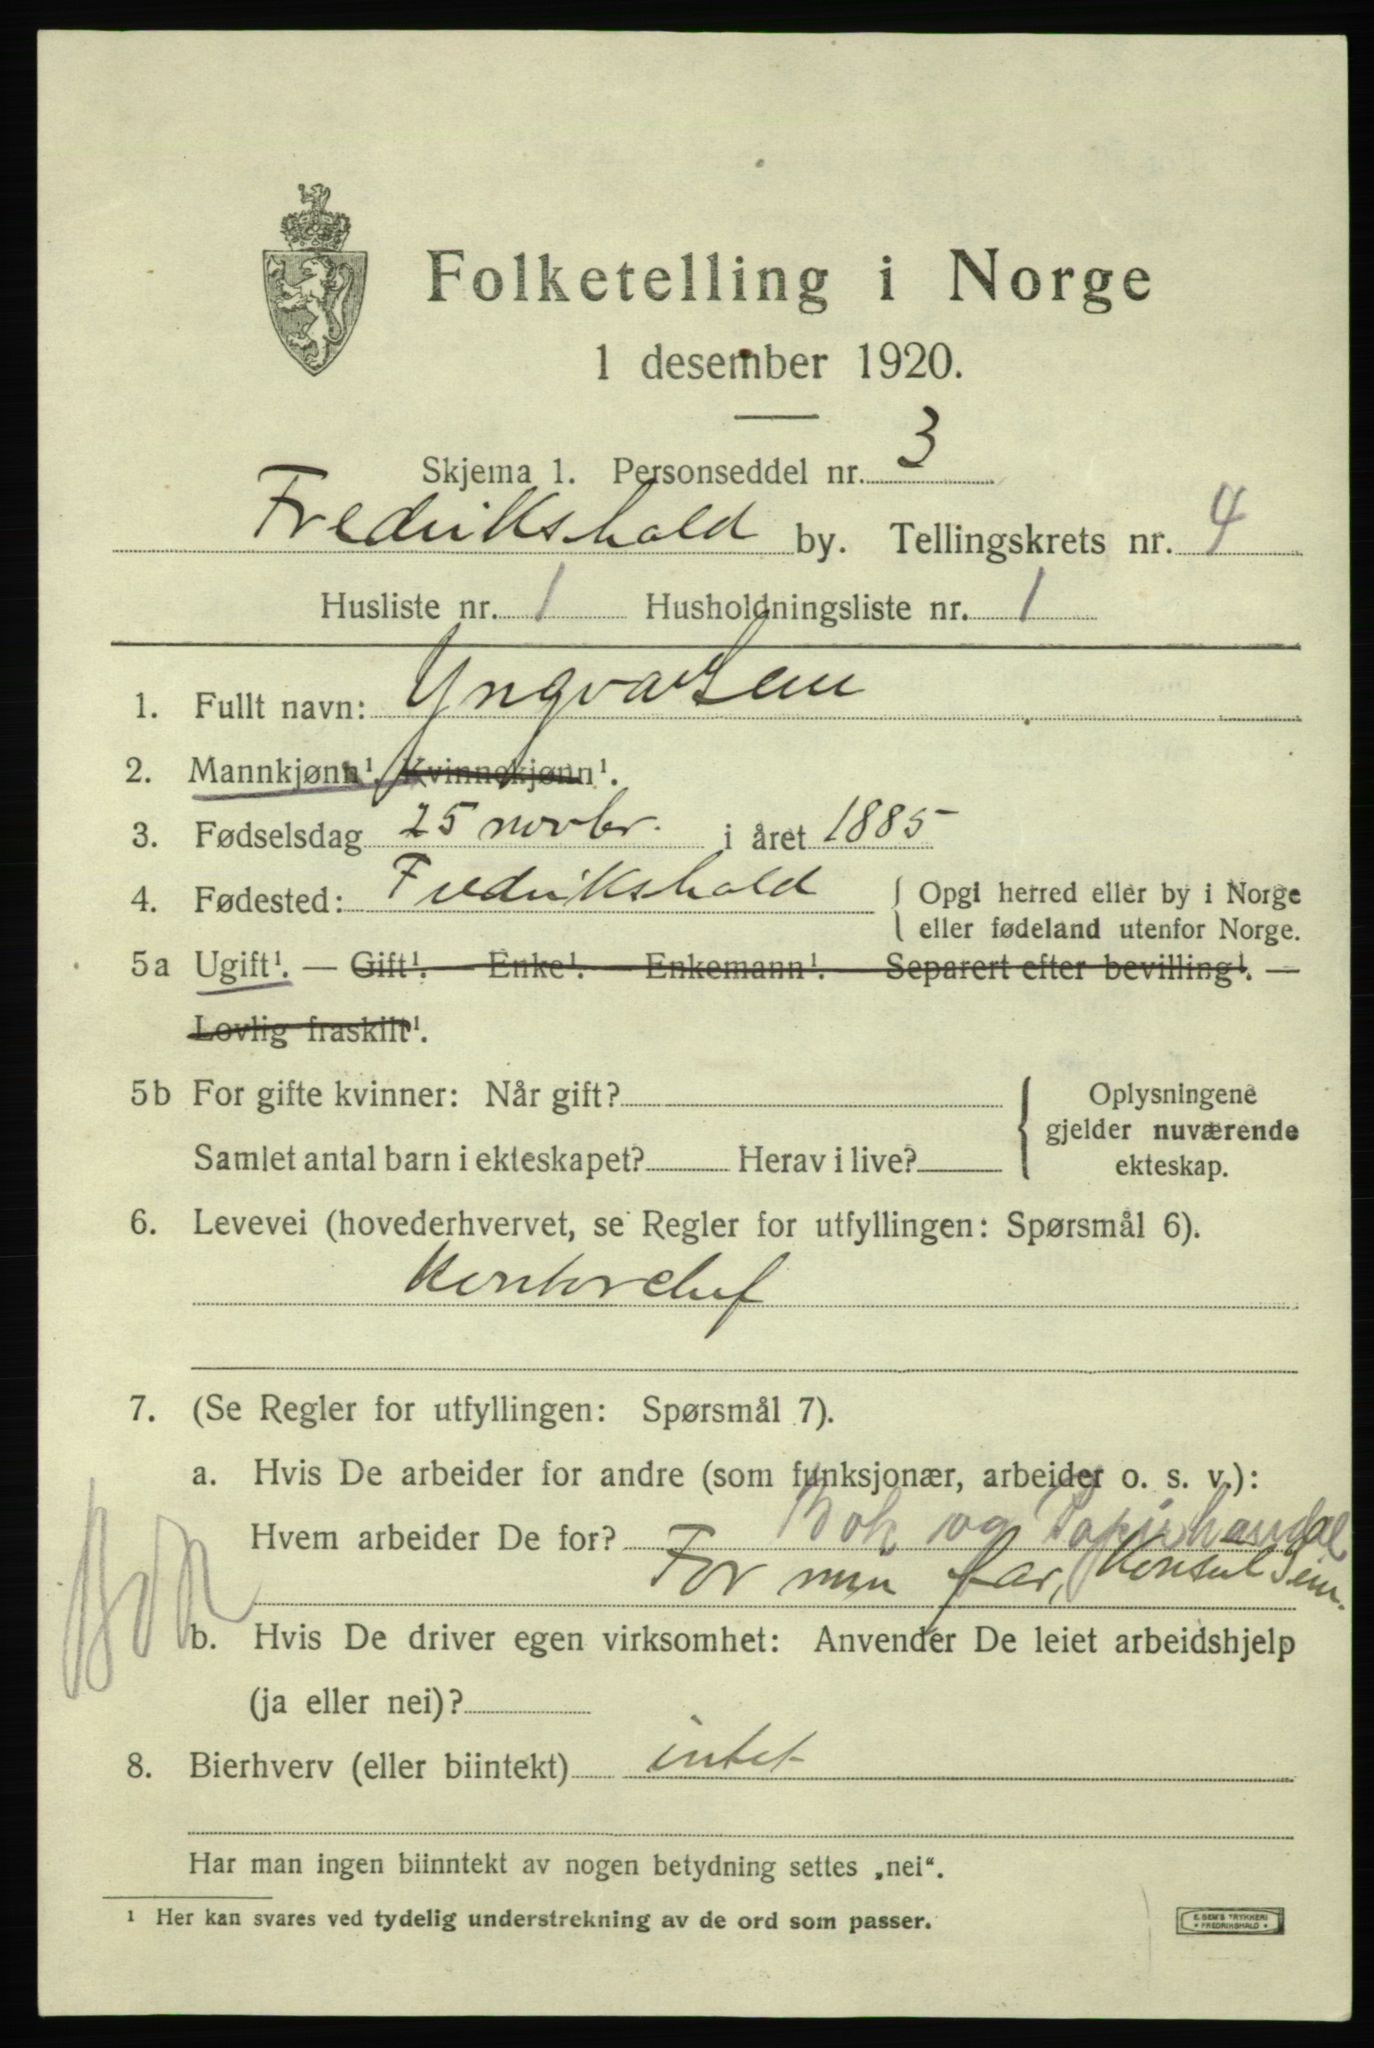 Folketelling i Norge
1 desember 1920.
Skjema 1. Personseddel nr. 3
Fredrikshald by. Tellingskrets nr. 4
Husliste nr. 1 Husholdningsliste nr. 1
1. Fullt navn: Yngvar Sem
2. Mannkjønn¹. Kvinnekjønn¹.
3. Fødselsdag 25 novbr. i året 1885
4. Fødested: Fredrikshald { Opgi herred eller by i Norge
eller fødeland utenfor Norge.
5a Ugift¹. — Gift¹. — Enke¹. — Enkemann¹. — Separert efter bevilling¹. —
Lovlig fraskilt¹.
5b For gifte kvinner: Når gift? { Oplysningene
gjelder nuværende
Samlet antal barn i ekteskapet? Herav i live? ekteskap.
6. Levevei (hovederhvervet, se Regler for utfyllingen: Spørsmål 6).
Kontorchef
7. (Se Regler for utfyllingen: Spørsmål 7).
a. Hvis De arbeider for andre (som funksjonær, arbeider o. s. v.):
Hvem arbeider De for? Bok og Papirhandel
For min far, Konsul Sem.
b. Hvis De driver egen virksomhet: Anvender De leiet arbeidshjelp
(ja eller nei)?
8. Bierhverv (eller biintekt) intet
Har man ingen biinntekt av nogen betydning settes „nei“.
¹ Her kan svares ved tydelig understrekning av de ord som passer.
E. SEM'S TRYKKERI
• FREDRIKSHALD •